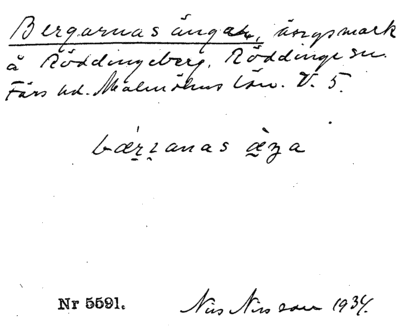 Bergarnas ängar, ängsmark
å Röddingeberg, Röddinge sn.
Färs hd. Malmöhus län. V. 5.
bæ̀rɪanas æ̀ŋa
Nr 5591. Nils Nilsson 1934.